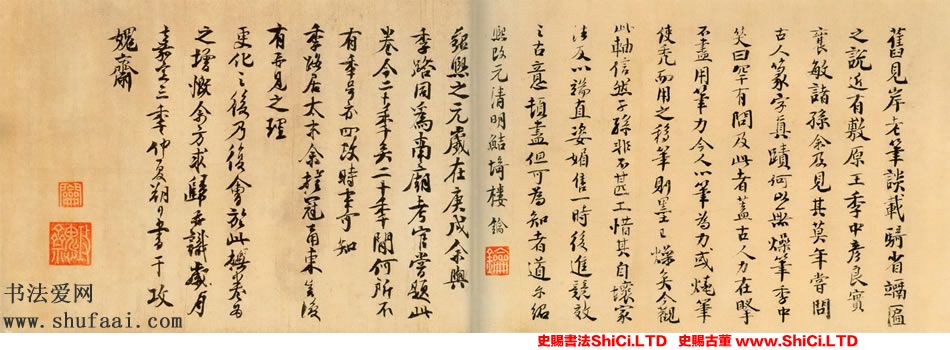 舊見岸老筆談載騎省竵匾
之說近有敷原王季中彥良實
襄敏諸孫余及見其莫年嘗問
古人篆字真蹟何以無燥筆季中
笑曰罕有問及此者蓋古人力在掔
不盡用筆力今人以筆為力或燒筆
使禿而用之移筆則墨已燥矣今觀
此軸信然子孫非不甚工惜其自壞家
法反以端直姿媚售一時後進競效
之古意頓盡但可為知者道尔紹
熙改元清明鮚埼樓鑰
紹熙之元歲在庚戌余與
季路同為南廟考官嘗題此
卷今二十年矣二十年間何所不
有年号亦四改時事可知
季路居太末余掛冠甬東豈復
有再見之理
更化之後乃復會於此撫卷為
之增慨余方求歸再識歲月
嘉定三年仲夏朔日書于攻
媿齋
书法爱网
www.shufaai.com
史賜書法ShiCi.LTD 史賜古董 www.ShiCi.LTD